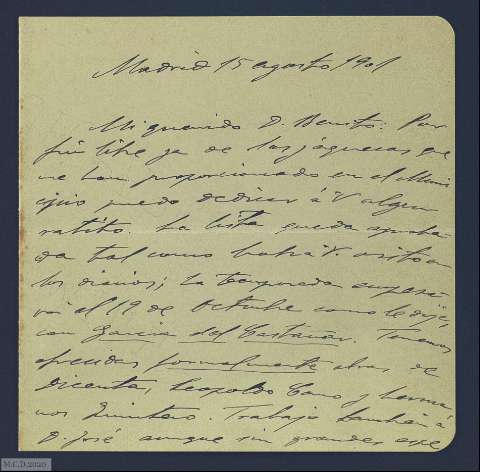 Madrid 15 agosto 1901
Mi querido D. Benito: Por
fin libre ya de las jaquecas que
me han proporcionado en el Muni
cipio puedo dedicar á V algun
ratito. La lista queda aproba-
da tal como habrá V. visto en
los diarios; La temporada empeza-
rá el 19 de Octubre como le dije,
con Garcia del Castañar. Tenemos
ofrecidas formalmente obras de
Dicenta, Leopoldo Cano y herma
nos Quintero. Trabajo tambien á
D. José aunque sin grandes espe
M.C.D.2020